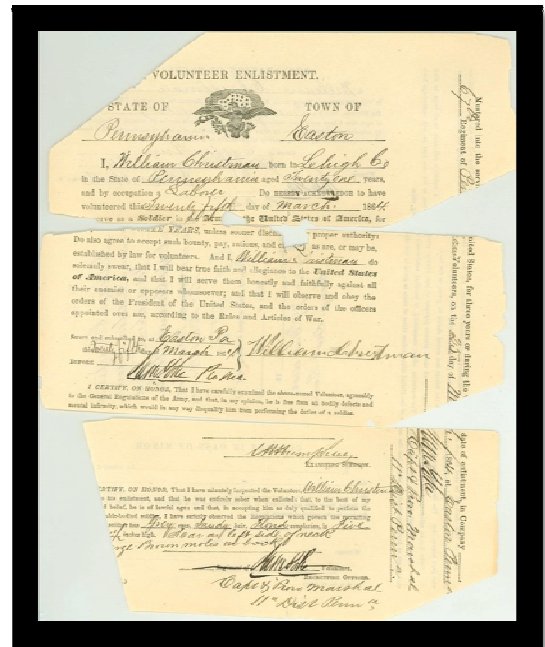 VOLUNTEER ENLISTMENT.
STATE OF TOWN OF
Pennsylvania Easton
I, William Christman born in Lehigh Co
in the State of Pennsylvania aged Twenty one years,
and by occupation a Laborer Do HEREBY ACKNOWLEDGE to have
volunteered this Twenty fifth day of March 1864
as a Soldier in the Army of the United States of America, for
YEARS, unless sooner proper authority:
Do also agree to accept such bounty, pay, rations, and as are, or may be,
established by law for volunteers. And I, William do
solemnly swear, that I will bear true faith and allegiance to the United States
of America, and that I will serve them honestly and faithfully against all
their enemies or opposers whomsoever; and that I will observe and obey the
orders of the President of the United States, and the orders of the officers
appointed over me, according to the Rules and Articles of War.
Sworn and subscribed to, at Easton Pa
March 1864 William Christman
BEFORE
I CERTIFY, ON HONOR, That I have carefully examined the above-named Volunteer, agreeably
to the General Regulations of the Army, and that, in my opinion, he is free from all bodily defects and
mental infirmity, which would in any way disqualify him from performing the duties of a soldier.
EXAMINING SURGEON.
CERTIFY, ON HONOR, That I have minutely inspected the Volunteer, William Christman
to his enlistment, and that he was entirely sober when enlisted; that to the best of my
belief, he is of lawful age; and that, in accepting him as duly qualified to perform the
able-bodied soldier, I have strictly observed the Regulations which govern the recruiting
has Grey eyes, Sandy hair, complexion, is Five
inches high. Scar on left side of neck
Brown moles on back
RECRUITING OFFICER.
Capt & Prov Marshal
11th Dist Penn a
Mustered into the
67th Regiment of
United States, for three years or during the
Volunteers, on the day of
date of enlistment, in Company
at Easton Penn
Capt & Prov Marshal
11th Dist Penn